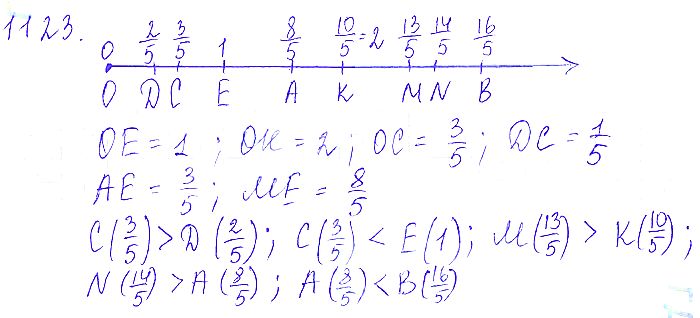 1123.
0 2/5 3/5 1 8/5 10/5=2 13/5 14/5 16/5
O D C E A K M N B
OE = 1 ; OK = 2 ; OC = 3/5 ; DC = 1/5
AE = 3/5 ; ME = 8/5
C(3/5) > D(2/5) ; C(3/5) < E(1) ; M(13/5) > K(10/5) ;
N(14/5) > A(8/5) ; A(8/5) < B(16/5)